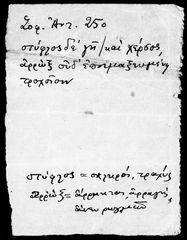 Σοφ. Ἀντ. 250
στύφλος δὲ γῆ / καὶ χέρσος,
ἀρρὼξ οὐδ' ἐπημαξευμένη
τροχοῖσιν
στύφλος = σκληρός, τραχύς
ἀρρὼξ = ἀρρηκτος, ἀρραγής,
ἄνευ ρωγμῶν